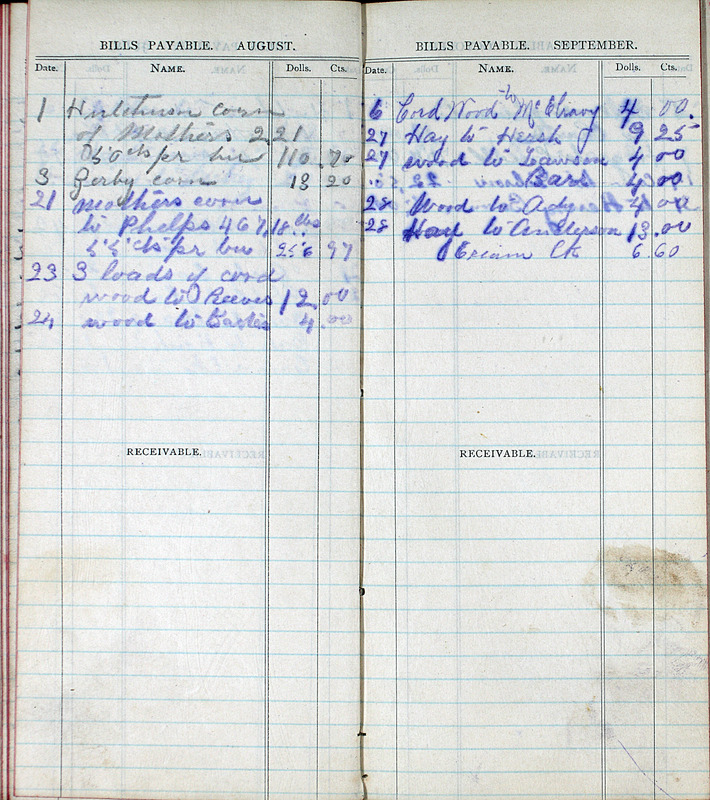 BILLS PAYABLE. AUGUST.
Date. NAME. Dolls. Cts.
1 Hutchinson corn
of Mothers 221
50 cts per bu 110.70
3 Gerby corn 13 20
21 Mothers corn
to Phelps 467, 18 lbs
55 cts per bu 256 97
23 3 loads of cord
wood to Reeves 12.00
24 wood to 4.00
RECEIVABLE.
BILLS PAYABLE. SEPTEMBER.
Date. NAME. Dolls. Cts.
6 Cord Wood to McElravy 4 00.
27 Hay to Hersh 9 25
27 wood to Lawson 4 00
4 00
28 Wood to Ady 4 00
28 Hay to Anderson 13.00
Cream Ck 6.60
RECEIVABLE.